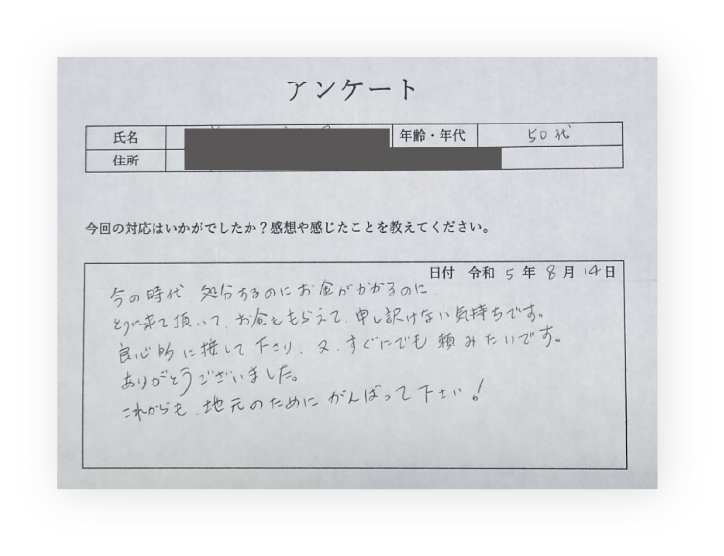 アンケート
氏名
年齢・年代 50代
住所
今回の対応はいかがでしたか？感想や感じたことを教えてください。
日付 令和 5 年 8 月 14 日
今の時代 処分するのにお金がかかるのに、
とりに来て頂いて、お金をもらえて、申し訳けない気持ちです。
良心的に接して下さり、又、すぐにでも頼みたいです。
ありがとうございました。
これからも、地元のためにがんばって下さい！